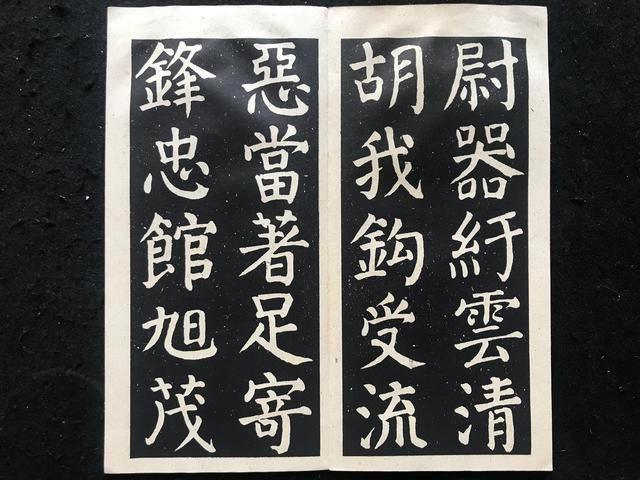 尉器紆雲清
胡我鈎受流
惡當著足寄
鋒忠館旭茂